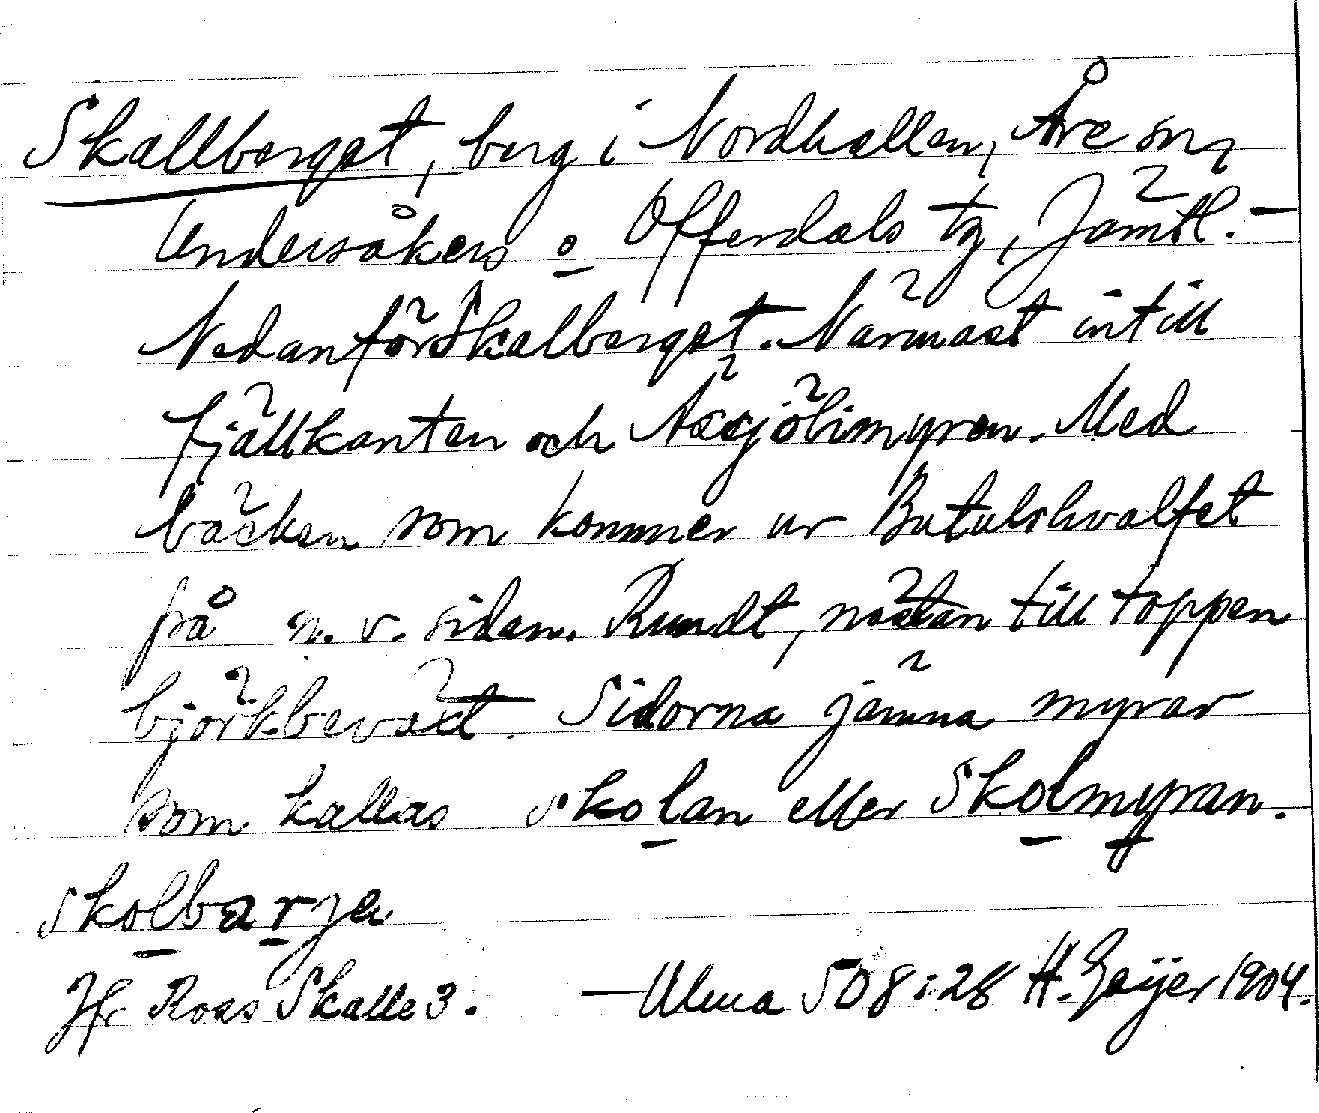 Skallberget, berg i Nordhallen, Åre sn,
Undersåkers o Offerdals tg, Jämtl. –
Nedanför Skalberget. Närmast intill
fjällkanten och Äcsjölimyren. Med
bäcken som kommer ur Butulshvalfet
på n. v. sidan. Rundt, nästan till toppen
björkbeväxt. Sidorna jämna myrar
som kallas skolan eller Skolmyran.
skolbarja
Jfr Roas Skalle 3. – Ulma 508:28 H. Geijer 1904.